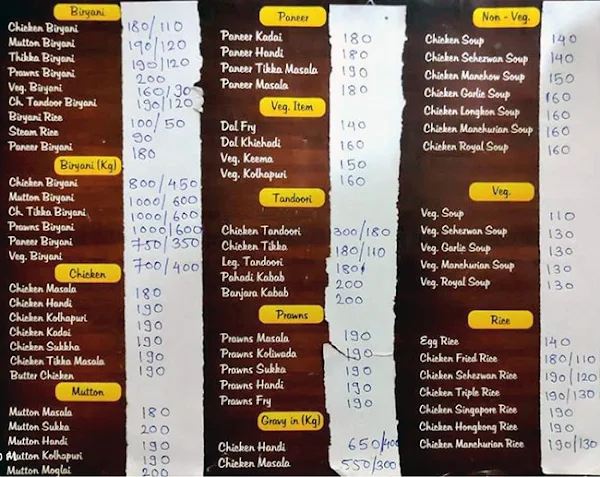 Biryani
Chicken Biryani 180/110
Mutton Biryani 190/120
Thikka Biryani 190/120
Prawns Biryani 200
Veg. Biryani 160/90
Ch. Tandoor Biryani 190/120
Biryani Rice 100/50
Steam Rice 90
Paneer Biryani 180
Biryani (Kg)
Chicken Biryani 800/450
Mutton Biryani 1000/600
Ch. Tikka Biryani 1000/600
Prawns Biryani 1000/600
Paneer Biryani 750/350
Veg. Biryani 700/400
Chicken
Chicken Masala 180
Chicken Handi 190
Chicken Kolhapuri 190
Chicken Kadai 190
Chicken Sukkha 190
Chicken Tikka Masala 190
Butter Chicken 190
Mutton
Mutton Masala 180
Mutton Sukka 200
Mutton Handi 190
Mutton Kolhapuri 190
Mutton Moglai 200
Paneer
Paneer Kadai 180
Paneer Handi 180
Paneer Tikka Masala 190
Paneer Masala 180
Veg. Item
Dal Fry 140
Dal Khichadi 160
Veg. Keema 150
Veg. Kolhapuri 160
Tandoori
Chicken Tandoori 300/180
Chicken Tikka 180/110
Leg. Tandoori 180/
Pahadi Kabab 200
Banjara Kabab 200
Prawns
Prawns Masala 190
Prawns Koliwada 190
Prawns Sukka 190
Prawns Handi 190
Prawns Fry 190
Gravy in (Kg)
Chicken Handi 650/400
Chicken Masala 550/300
Non - Veg.
Chicken Soup 140
Chicken Sehezwan Soup 140
Chicken Manchow Soup 150
Chicken Garlic Soup 160
Chicken Longkon Soup 160
Chicken Manchurian Soup 160
Chicken Royal Soup 160
Veg.
Veg. Soup 110
Veg. Sehezwan Soup 130
Veg. Garlic Soup 130
Veg. Manchurian Soup 130
Veg. Royal Soup 130
Rice
Egg Rice 140
Chicken Fried Rice 180/110
Chicken Sehezwan Rice 190/120
Chicken Triple Rice 190/130
Chicken Singapore Rice 190
Chicken Hongkong Rice 190
Chicken Manchurian Rice 190/130